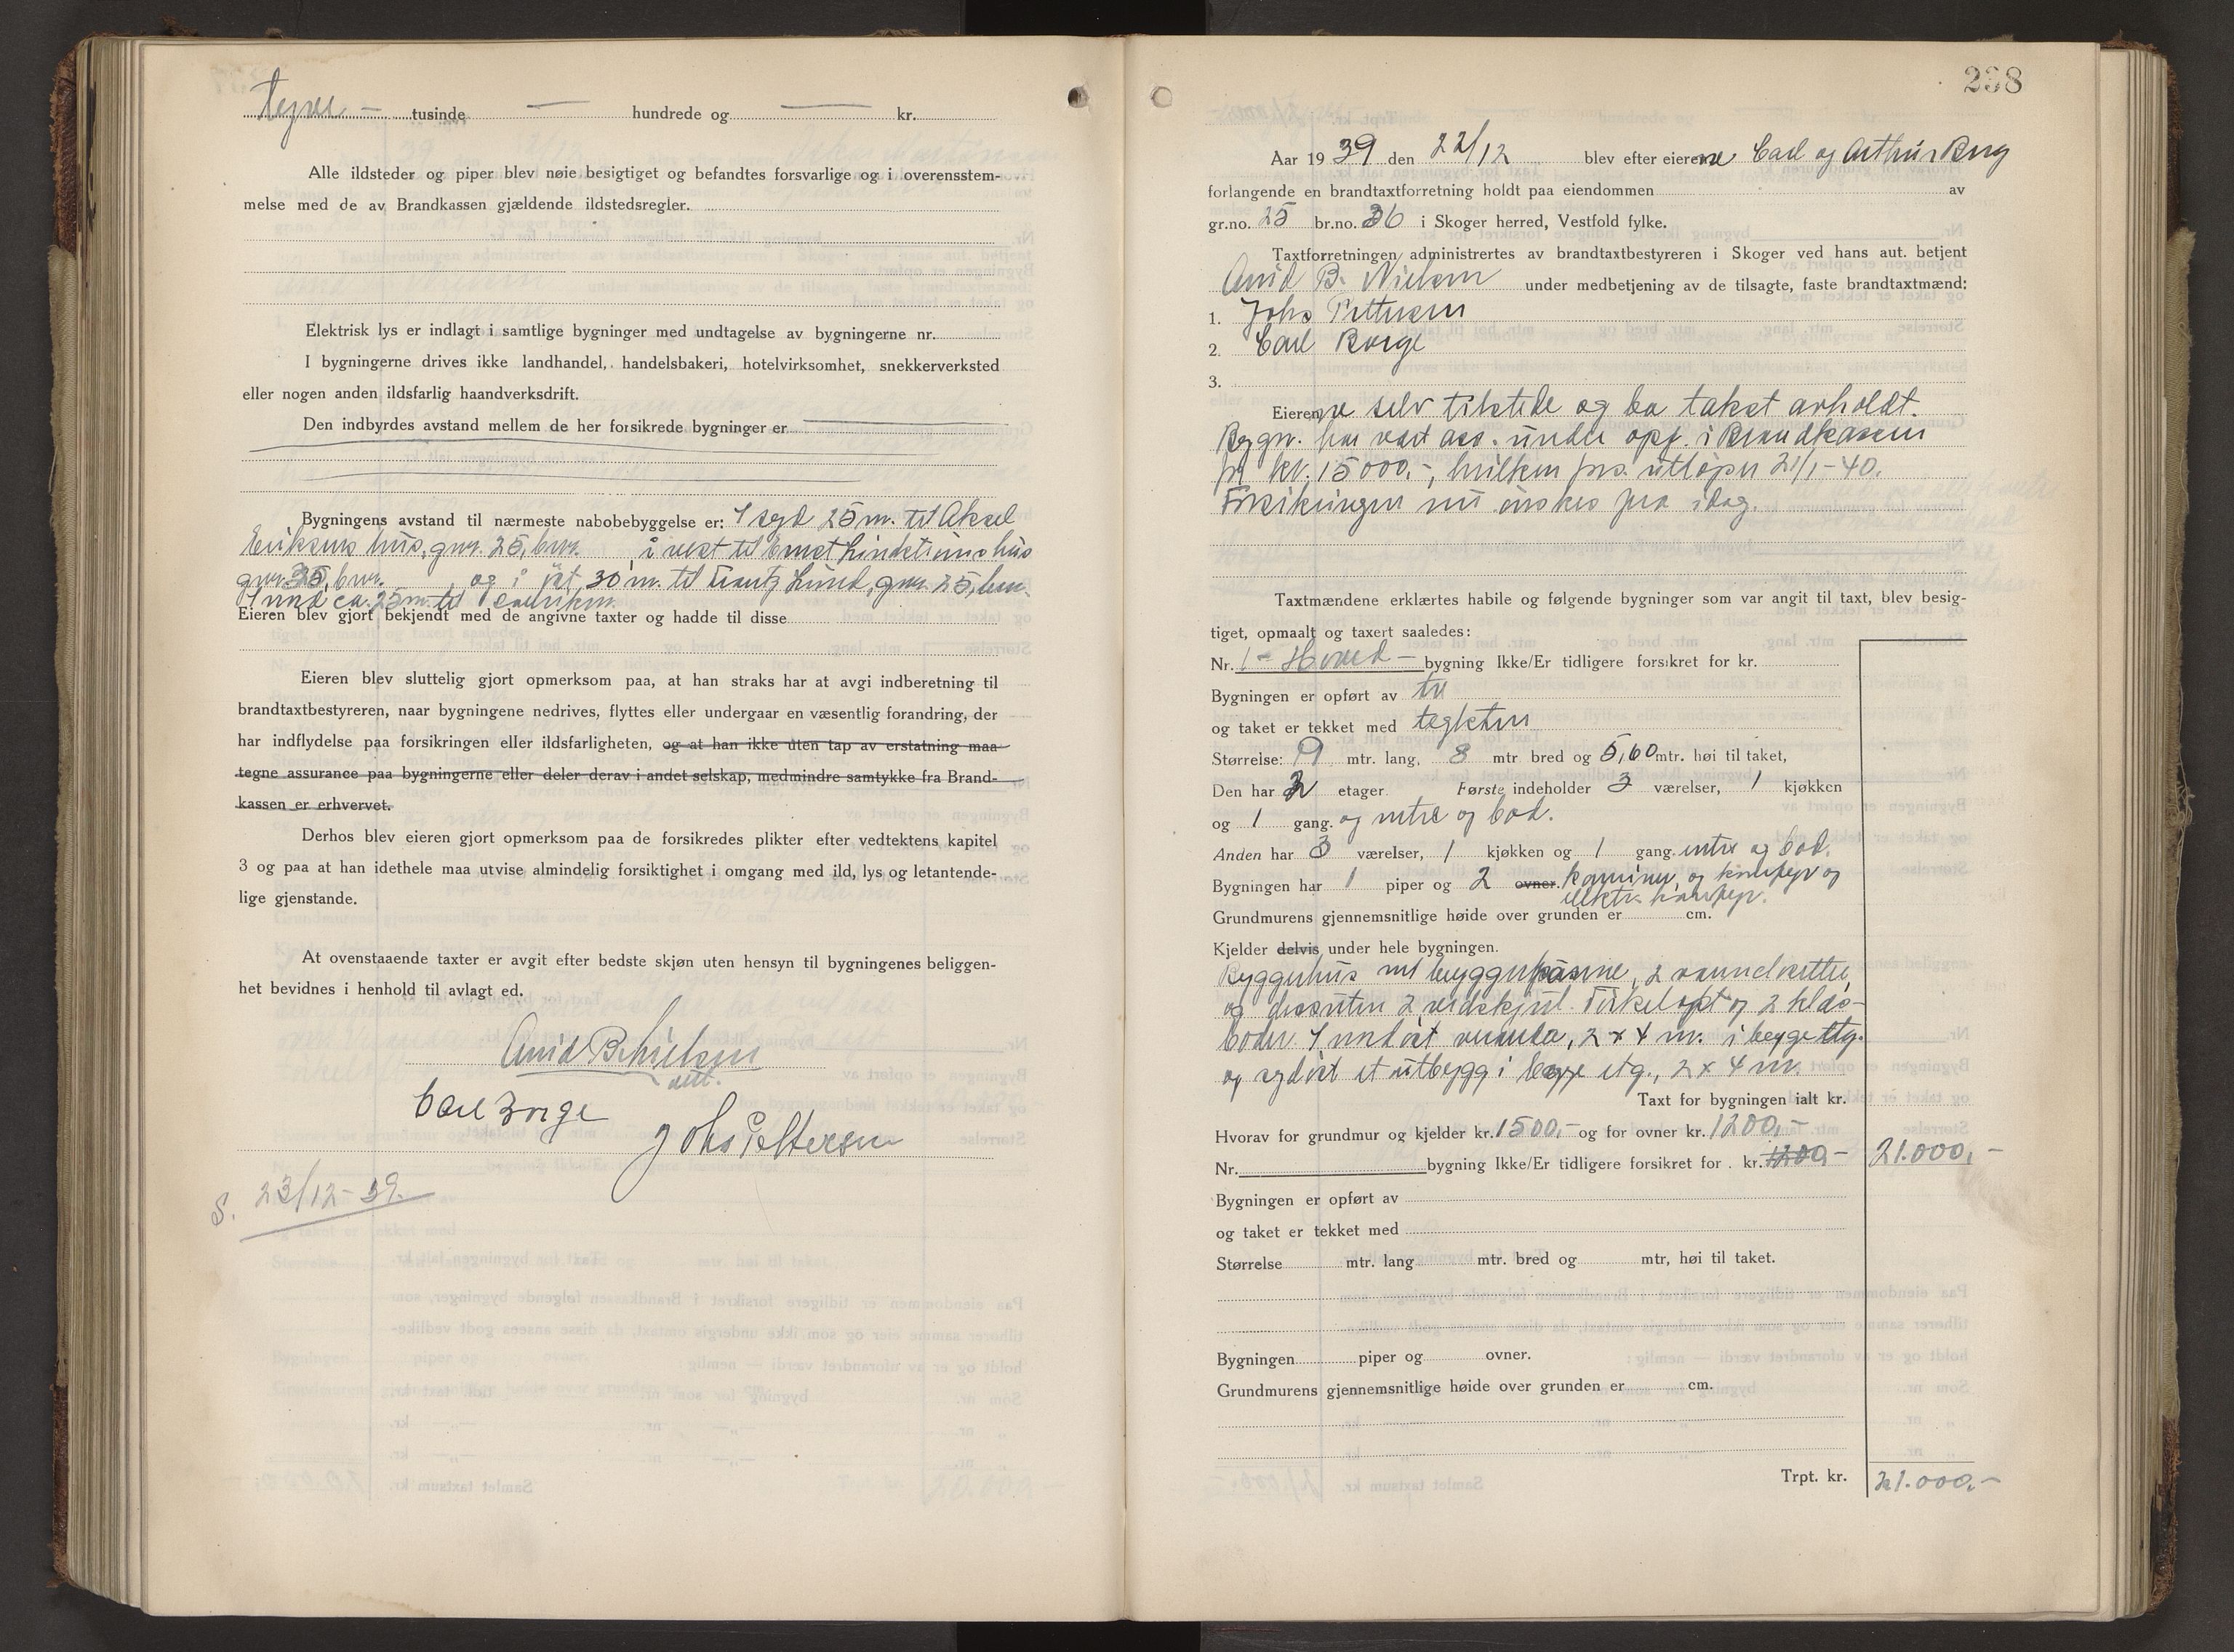 tyve — tusinde — hundrede og — kr.
Alle ildsteder og piper blev nøie besigtiget og befandtes forsvarlige og i overensstem-
melse med de av Brandkassen gjældende ildstedsregler.
Elektrisk lys er indlagt i samtlige bygninger med undtagelse av bygningerne nr.
I bygningerne drives ikke landhandel, handelsbakeri, hotelvirksomhet, snekkerverksted
eller nogen anden ildsfarlig haandverksdrift.
Den indbyrdes avstand mellem de her forsikrede bygninger er
Bygningens avstand til nærmeste nabobebyggelse er: I syd 25 m. til Aksel
Eriksens hus, gnr. 25, bnr. i vest til Ernst Lindstrøms hus
gnr. 25, bnr. , og i øst 30 m. til Frantz Lund, gnr. 25, bnr.
I nord ca. 25 m. til
Eieren blev gjort bekjendt med de angivne taxter og hadde til disse
Eieren blev sluttelig gjort opmerksom paa, at han straks har at avgi indberetning til
brandtaxtbestyreren, naar bygningene nedrives, flyttes eller undergaar en væsentlig forandring, der
har indflydelse paa forsikringen eller ildsfarligheten, og at han ikke uten tap av erstatning maa
tegne assurance paa bygningerne eller deler derav i andet selskap, medmindre samtykke fra Brand-
kassen er erhvervet.
Derhos blev eieren gjort opmerksom paa de forsikredes plikter efter vedtektens kapitel
3 og paa at han idethele maa utvise almindelig forsiktighet i omgang med ild, lys og letantende-
lige gjenstande.
At ovenstaaende taxter er avgit efter bedste skjøn uten hensyn til bygningenes beliggen-
het bevidnes i henhold til avlagt ed.
Arvid B. Nielsen
Carl Borge
Johs Pettersen
S. 23/12-39.
238
Aar 1939 den 22/12 blev efter eierene Carl og Arthur Berg
forlangende en brandtaxtforretning holdt paa eiendommen av
gr.no. 25 br.no. 36 i Skoger herred, Vestfold fylke.
Taxtforretningen administrertes av brandtaxtbestyreren i Skoger ved hans aut. betjent
Arvid B. Nielsen under medbetjening av de tilsagte, faste brandtaxtmænd:
1. Johs Pettersen
2. Carl Borge
3.
Eierene selv tilstede og ba takst avholdt.
Bygn. har vært ass. under opf. i Brandkassen
for kr. 15000,-, hvilken fors. utløper 21/1-40.
Forsikringen nu ønskes fra idag.
Taxtmændene erklærtes habile og følgende bygninger som var angit til taxt, blev besig-
tiget, opmaalt og taxert saaledes:
Nr. 1 - Hoved - bygning Ikke/Er tidligere forsikret for kr.
Bygningen er opført av tre
og taket er tekket med teglsten
Størrelse: 9 mtr. lang, 8 mtr bred og 5,60 mtr. høi til taket,
Den har 2 etager. Første indeholder 3 værelser, 1 kjøkken
og 1 gang. og entre og bod.
Anden har 3 værelser, 1 kjøkken og 1 gang. entre og bod.
Bygningen har 1 piper og 2 ovner. kaminer og komfyr og
elektr. komfyr.
Grundmurens gjennemsnitlige høide over grunden er cm.
Kjelder delvis under hele bygningen.
Bryggerhus m/ bryggerpanne, 2
og dessuten 2 vedskjul. Tørkeloft og 2 klæs-
boder. I nordøst veranda, 2 x 4 m. i begge etg.
og sydøst et utbygg i begge etg., 2 x 4 m.
Taxt for bygningen ialt kr.
Hvorav for grundmur og kjelder kr. 1500,- og for ovner kr. 1200,-
21.000,-
Nr. bygning Ikke/Er tidligere forsikret for kr. 1200,-
Bygningen er opført av
og taket er tekket med
Størrelse mtr. lang mtr. bred og mtr, høi til taket.
Bygningen piper og ovner.
Grundmurens gjennemsnitlige høide over grunden er cm.
Trpt. kr. 21.000,-